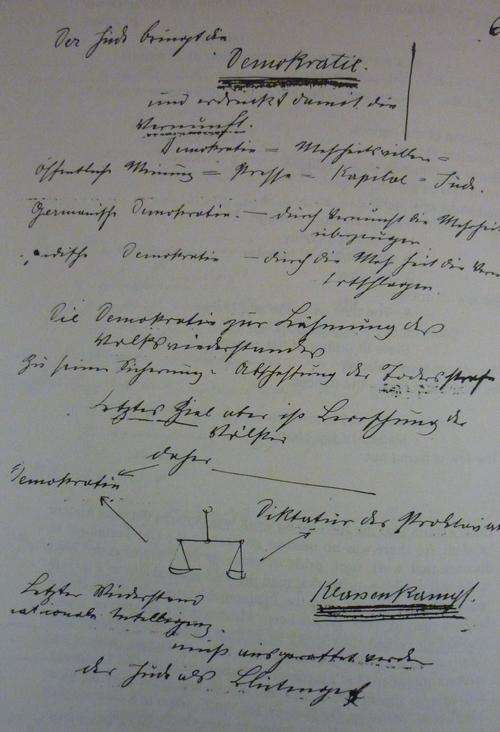 6
Der Jude bringt die
Demokratie.
und erdrückt damit die
Vernunft.
Demokratie = Mehrheitswillen =
Öffentliche Meinung = Presse = Kapital = Jude.
Germanische Demokratie. — durch Vernunft die Mehrheit
überzeugen
Jüdische Demokratie — durch die Mehrheit die Vern
totschlagen.
Die Demokratie zur Lähmung des
Volkswiederstandes
Zu seiner Sicherung: Abschaffung der Todesstrafe
Letztes Ziel aber ist Beherrschung der
Völker
daher
Demokratie
Diktatur des Proletariat
Klassenkampf.
Letzter Wiederstand
nationale Intelligenz.
muß ausgerottet werden
der Jude als